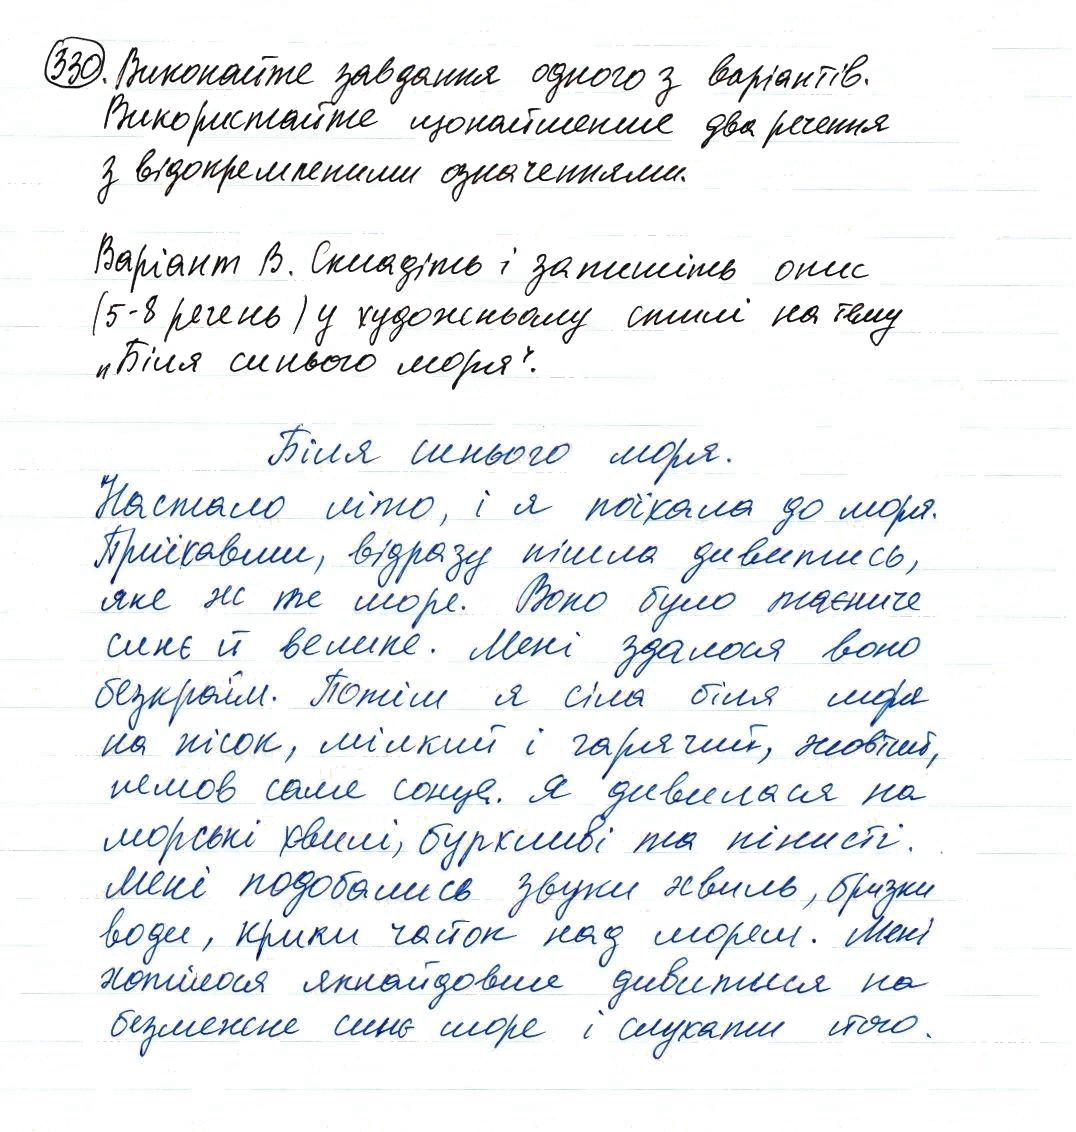 330. Виконайте завдання одного з варіантів.
Використайте щонайменше два речення
з відокремленими означеннями.
Варіант В. Складіть і запишіть опис
(5-8 речень) у художньому стилі на тему
„Біля синього моря".
Біля синього моря.
Настало літо, і я поїхала до моря.
Приїхавши, відразу пішла дивитись,
яке ж те море. Воно було таємниче
синє й велике. Мені здалося воно
безкраїм. Потім я сіла біля моря
на пісок, мілкий і гарячий, жовтий,
немов саме сонце. Я дивилася на
морські хвилі, бурхливі та пінисті.
Мені подобались звуки хвиль, бризки
води, крики чайок над морем. Мені
хотілося якнайдовше дивитися на
безмежне синє море і слухати його.